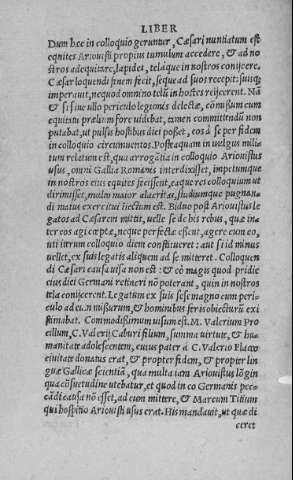 LIBER
Dum hæc in colloquio geruntur, Cæsari nuntiatum est
equites Ariouisti propius tumulum accedere, & ad no
stros adequitare, lapides, telaq́ue in nostros conijcere.
Cæsar loquendi finem fecit, seque ad suos recepit: suisq́;
imperauit, nequod omnino telū in hostes reijcerent. Nā
& si sine ullo periculo legionis delectæ, cōmissum cum
equitatu prælium fore uidebat, tamen committendū non
putabat, ut pulsis hostibus dici posset, eos à se per fidem
in colloquio circumuentos. Posteaquam in uulgus mili
tum relatum est, qua arrogātia in colloquio Ariouistus
usus, omni Gallia Romanis interdixisset, impetumque
in nostros eius equites fecissent, eaque res colloquium ut
diremisset, multo maior alacritas, studiumque pugnan
di maius exercitui iniectum est. Biduo post Ariouistus le
gatos ad Cæsarem mittit, uelle se de his rebus, quæ in
ter eos agi cœptæ, neque perfectæ essent, agere cum eo,
uti iterum colloquio diem constitueret: aut si id minus
uellet, ex suis legatis aliquem ad se mitteret. Colloquen
di Cæsari causa uisa non est: & eò magis quod pridie
eius diei Germani retineri nō poterant, quin in nostros
tela conijcerent. Legatum ex suis sese magno cum peri-
culo ad eum missurum, & hominibus feris obiecturū exi
stimabat. Commodissimum uisum est. M. Valerium Pro
cillum, C. Valerij Caburi filium, summa uirtute, & hu-
manitate adolescentem, cuius pater à C. Valerio Flacco
ciuitate donatus erat, & propter fidem, & propter lin
guæ Gallicæ scientiā, qua multa iam Ariouistus lōgin
qua cōsuetudine utebatur, et quod in eo Germanis pec-
cādi causa nō esset, ad eum mittere, & Marcum Titium
qui hospitio Ariouisti usus erat. His mandauit, ut quæ di
ceret